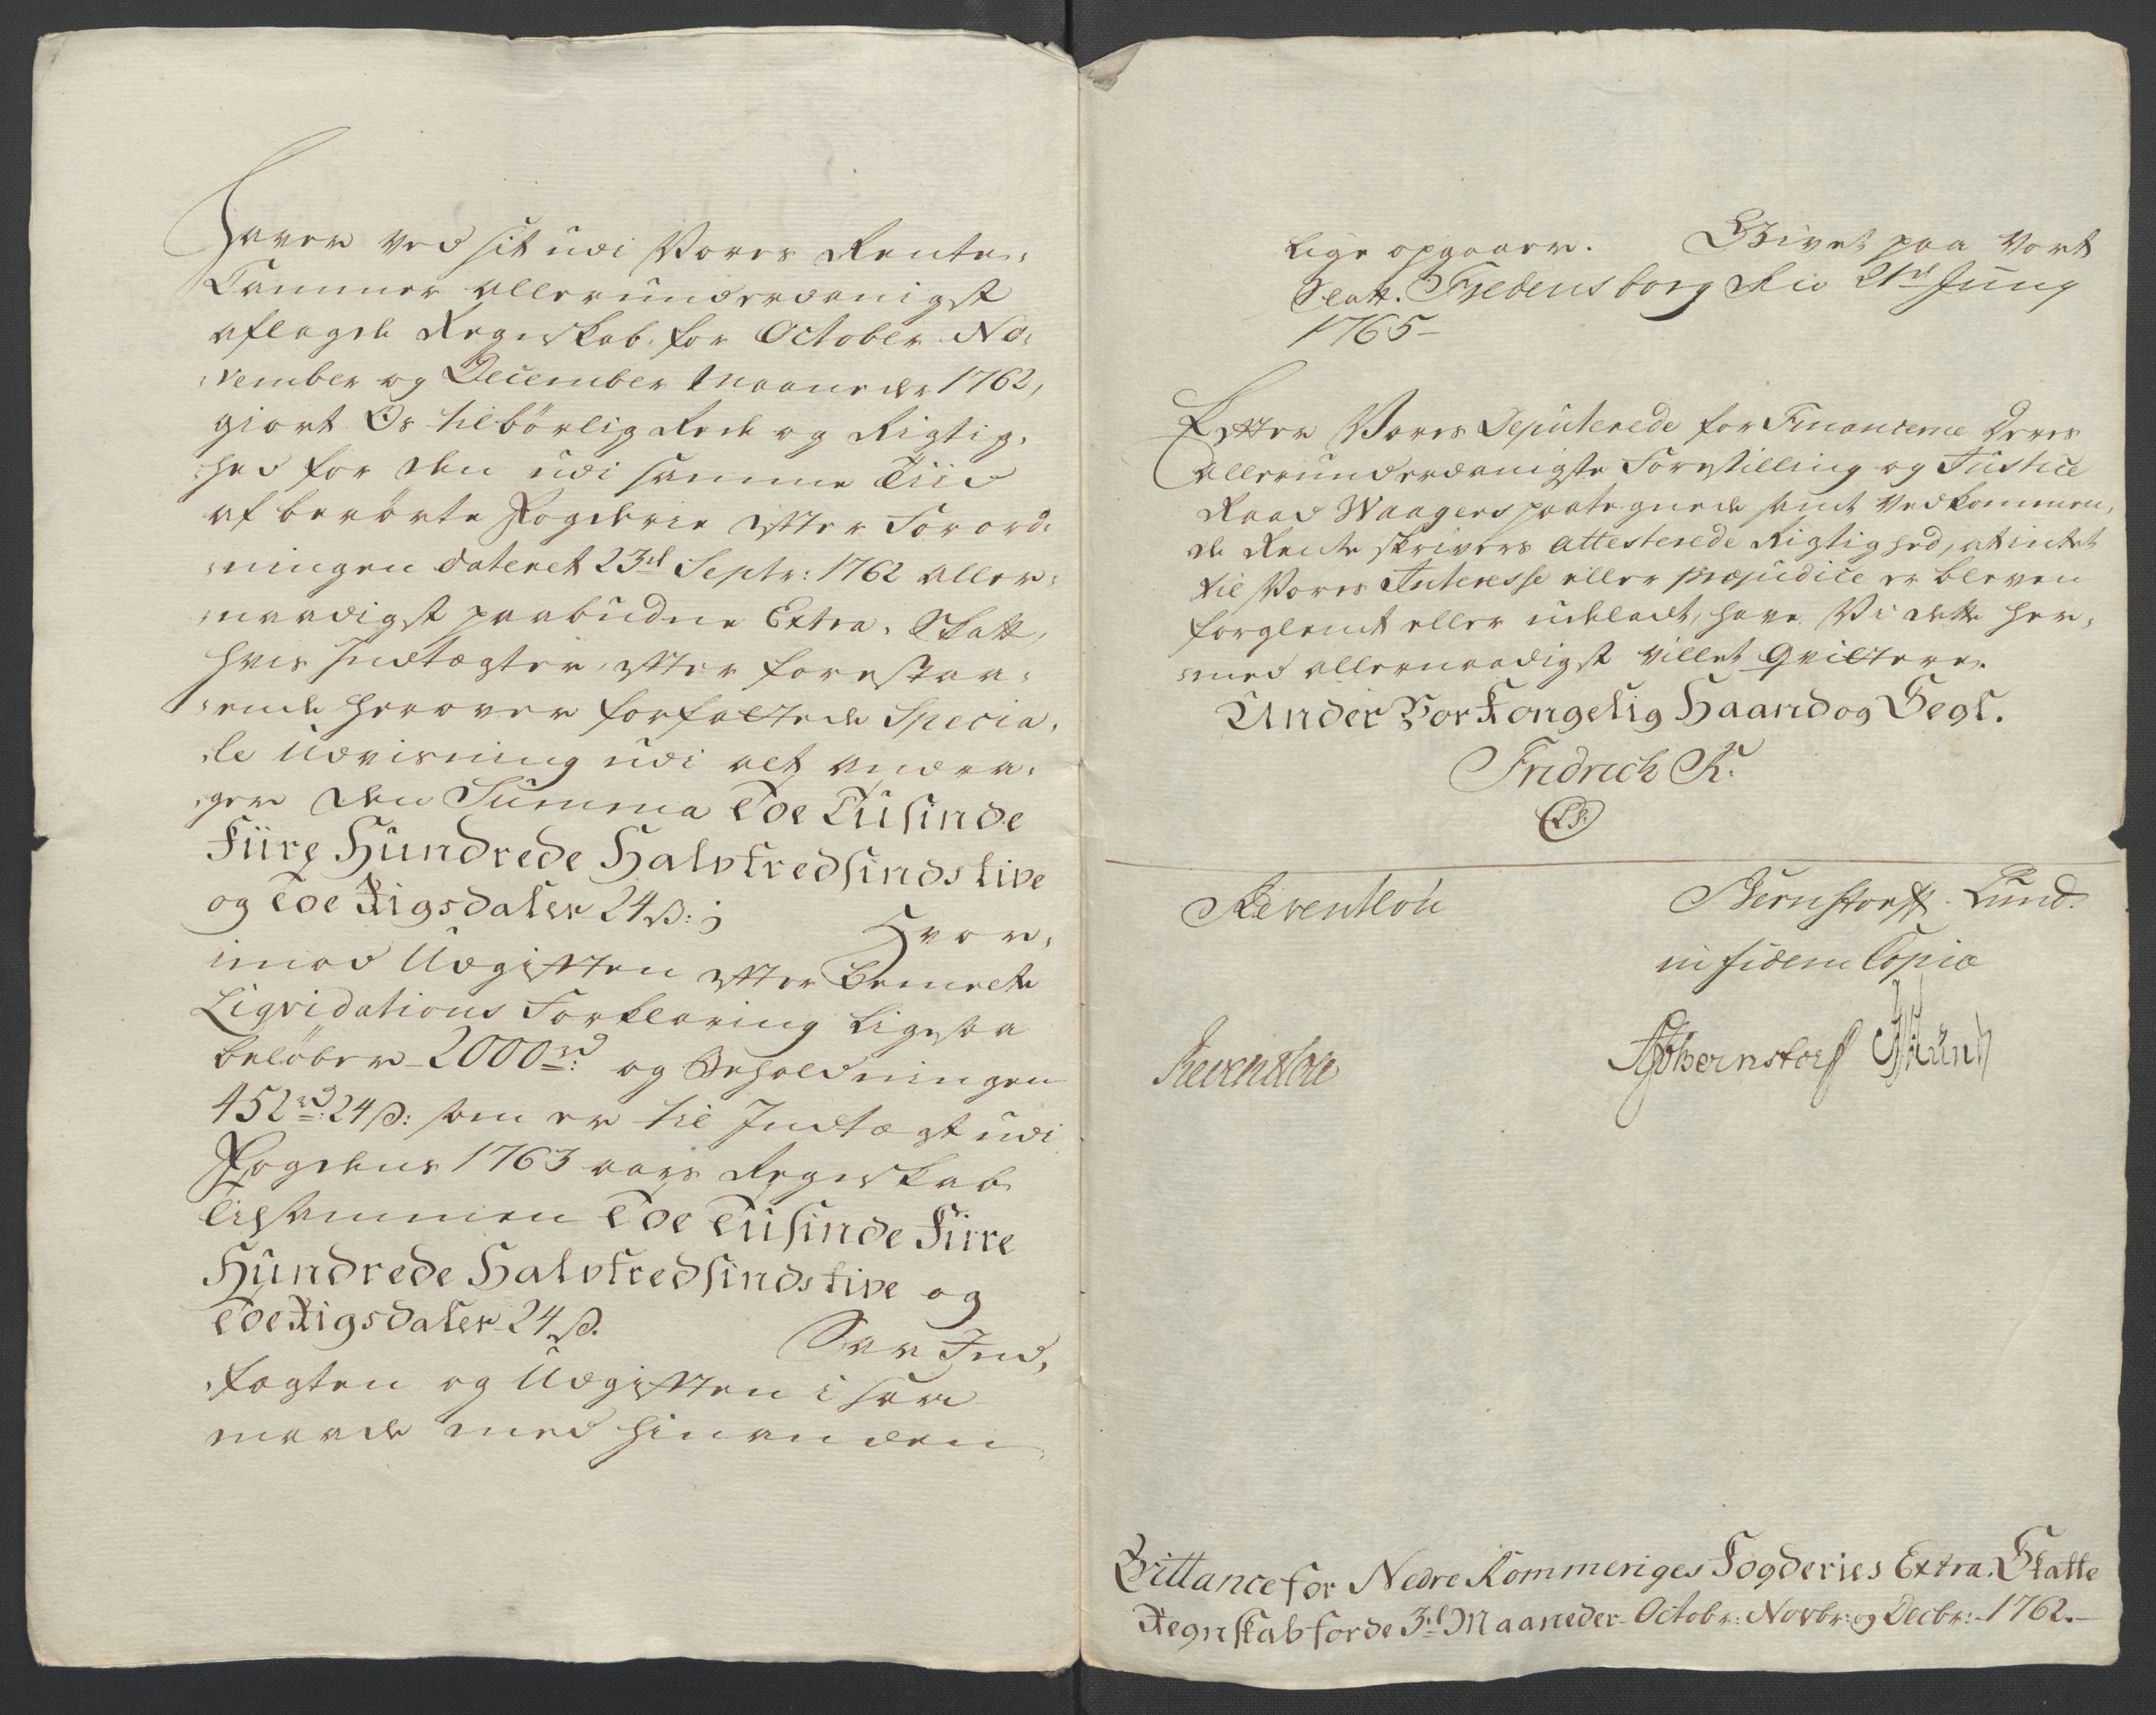 Haver ved sit udi Vores Rente-
Cammer allerunderdanigst
aflagde Regnskab, for October No-
vember og December Maaneder 1762,
giort Os tilbörlig Rede og Rigtig-
hed for den udi samme Tiid
af berörte Fogderie efter Forord-
ningen dateret 23de Septr: 1762 aller-
naadigst paabudne Extra. Skatt,
hvis Indtægter, efter forestaa-
ende herover forfattede Specia-
le Udvisning udi alt andra-
ger den Summa Toe Tusinde
Fiire Hundrede Halvtredsindstive
og Toe Rigsdaler 24 ß:;
Hvor-
imod Udgiften efter bemelte
Liqvidations Forklaring ligesaa
belöber 2000 rd: og Beholdningen
452 rd: 24 ß: som er til Indtægt udi
Fogdens 1763 aars Regnskab
tilsammen Toe Tusinde Fiire
Hundrede Halvtredsindstive og
Toe Rigsdaler 24 ß.
Saa Ind-
tægten og Udgiften i saa
maade med hinanden
lige opgaaer. Givet paa Vort
Slott. Fredensborg den 21de Juny
1765-
Efter Vores Deputerede for Financerne deres
allerunderdanigste Forestilling og Justice
Raad Waagers paategnede samt vedkommen-
de Renteskrivers attesterede Rigtighed, at intet
til Vores Interesse eller præjudice er bleven
forglemt eller udeladt, have Vi dette her-
med allernaadigst villet Qvittere.
Under Vor Kongelig Haand og Segl.
Fridrich R.
L.S.
Reventlou
Bernstorff. Lund.
in fidem Copiæ
Reventlou
Bernstorff Lund
Qvittance for Nedre Rommeriges Fogderies Extra. Skatte
Regnskab for de 3de Maaneder Octobr: Novbr: og Decbr: 1762.